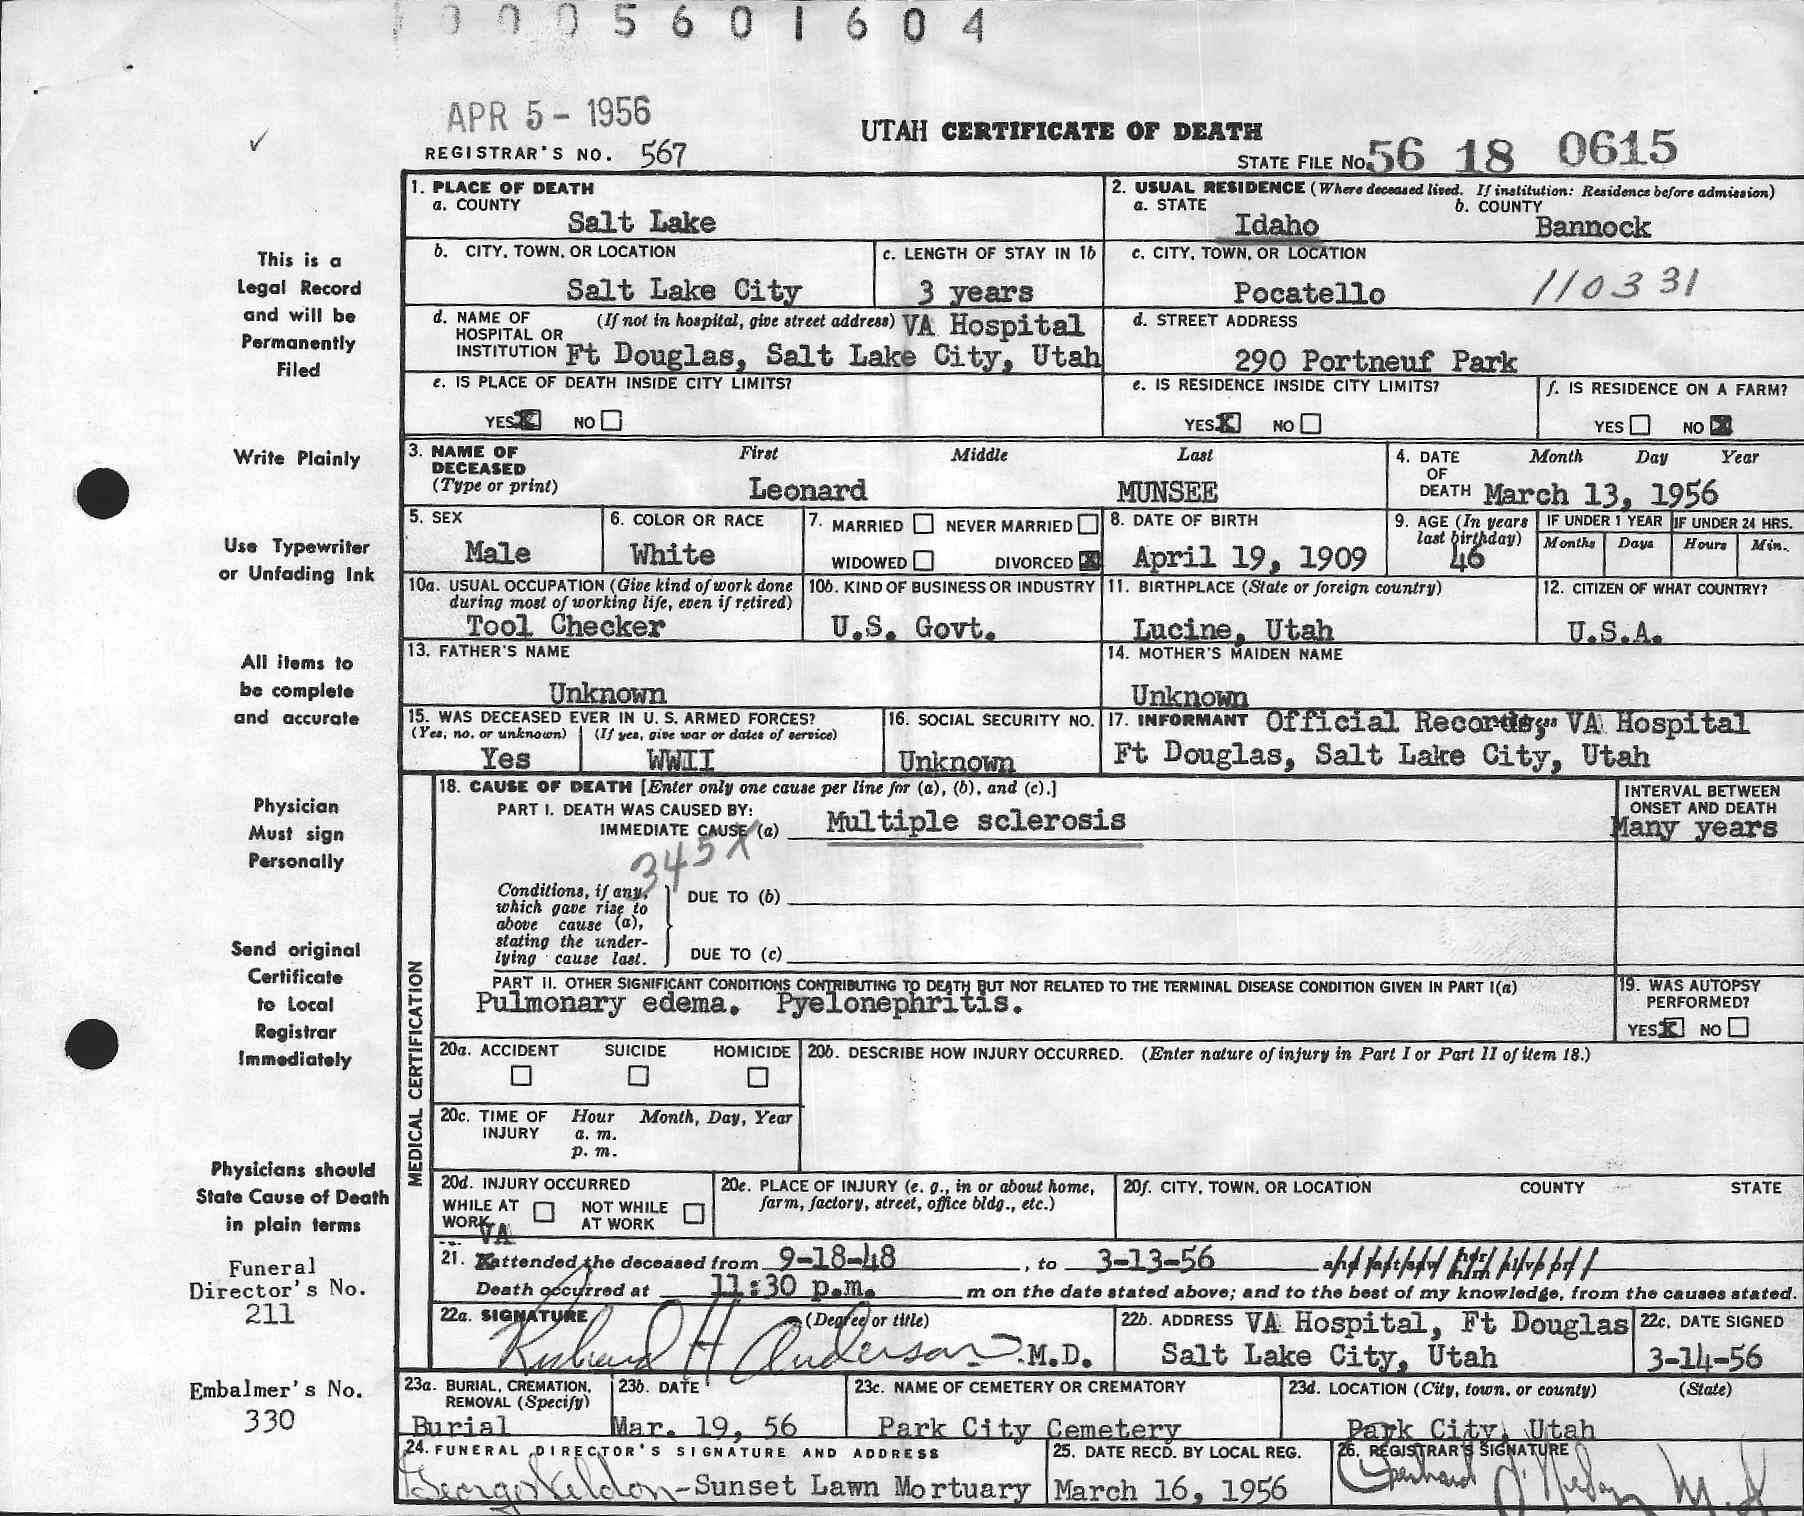 0005601604
APR 5 - 1956
UTAH CERTIFICATE OF DEATH
REGISTRAR'S NO. 567
STATE FILE No. 56 18 0615
1. PLACE OF DEATH
a. COUNTY
Salt Lake
2. USUAL RESIDENCE (Where deceased lived. If institution: Residence before admission)
a. STATE b. COUNTY
Idaho Bannock
b. CITY, TOWN, OR LOCATION
Salt Lake City
c. LENGTH OF STAY IN 1b
3 years
c. CITY, TOWN, OR LOCATION
Pocatello 110331
d. NAME OF (If not in hospital, give street address) VA Hospital
HOSPITAL OR
INSTITUTION Ft Douglas, Salt Lake City, Utah
d. STREET ADDRESS
290 Portneuf Park
e. IS PLACE OF DEATH INSIDE CITY LIMITS?
YES X NO
e. IS RESIDENCE INSIDE CITY LIMITS?
YES X NO
f. IS RESIDENCE ON A FARM?
YES NO X
3. NAME OF DECEASED (Type or print)
First Middle Last
Leonard MUNSEE
4. DATE OF DEATH
Month Day Year
March 13, 1956
5. SEX
Male
6. COLOR OR RACE
White
7. MARRIED NEVER MARRIED
WIDOWED DIVORCED X
8. DATE OF BIRTH
April 19, 1909
9. AGE (In years last birthday)
46
IF UNDER 1 YEAR
Months Days
IF UNDER 24 HRS.
Hours Min.
10a. USUAL OCCUPATION (Give kind of work done
during most of working life, even if retired)
Tool Checker
10b. KIND OF BUSINESS OR INDUSTRY
U.S. Govt.
11. BIRTHPLACE (State or foreign country)
Lucine, Utah
12. CITIZEN OF WHAT COUNTRY?
U.S.A.
13. FATHER'S NAME
Unknown
14. MOTHER'S MAIDEN NAME
Unknown
15. WAS DECEASED EVER IN U. S. ARMED FORCES?
(Yes, no. or unknown) (If yes, give war or dates of service)
Yes WWII
16. SOCIAL SECURITY NO.
Unknown
17. INFORMANT Official Records, VA Hospital
Ft Douglas, Salt Lake City, Utah
MEDICAL CERTIFICATION
18. CAUSE OF DEATH [Enter only one cause per line for (a), (b), and (c).]
PART I. DEATH WAS CAUSED BY:
IMMEDIATE CAUSE (a) Multiple sclerosis
345X
INTERVAL BETWEEN
ONSET AND DEATH
Many years
Conditions, if any,
which gave rise to
above cause (a),
stating the under-
lying cause last.
DUE TO (b)
DUE TO (c)
PART II. OTHER SIGNIFICANT CONDITIONS CONTRIBUTING TO DEATH BUT NOT RELATED TO THE TERMINAL DISEASE CONDITION GIVEN IN PART I(a)
Pulmonary edema. Pyelonephritis.
19. WAS AUTOPSY
PERFORMED?
YES X NO
20a. ACCIDENT SUICIDE HOMICIDE
20b. DESCRIBE HOW INJURY OCCURRED. (Enter nature of injury in Part I or Part II of item 18.)
20c. TIME OF INJURY
Hour Month, Day, Year
a. m.
p. m.
20d. INJURY OCCURRED
WHILE AT WORK NOT WHILE AT WORK
20e. PLACE OF INJURY (e. g., in or about home,
farm, factory, street, office bldg., etc.)
20f. CITY, TOWN, OR LOCATION COUNTY STATE
VA
21. I attended the deceased from 9-18-48, to 3-13-56 and last saw her him alive on
Death occurred at 11:30 p.m. m on the date stated above; and to the best of my knowledge, from the causes stated.
22a. SIGNATURE (Degree or title)
Richard H Anderson M.D.
22b. ADDRESS VA Hospital, Ft Douglas
Salt Lake City, Utah
22c. DATE SIGNED
3-14-56
23a. BURIAL, CREMATION,
REMOVAL (Specify)
Burial
23b. DATE
Mar. 19, 56
23c. NAME OF CEMETERY OR CREMATORY
Park City Cemetery
23d. LOCATION (City, town. or county) (State)
Park City, Utah
24. FUNERAL DIRECTOR'S SIGNATURE AND ADDRESS
Sunset Lawn Mortuary
25. DATE RECD. BY LOCAL REG.
March 16, 1956
26. REGISTRAR'S SIGNATURE
This is a
Legal Record
and will be
Permanently
Filed
Write Plainly
Use Typewriter
or Unfading Ink
All items to
be complete
and accurate
Physician
Must sign
Personally
Send original
Certificate
to Local
Registrar
Immediately
Physicians should
State Cause of Death
in plain terms
Funeral
Director's No.
211
Embalmer's No.
330